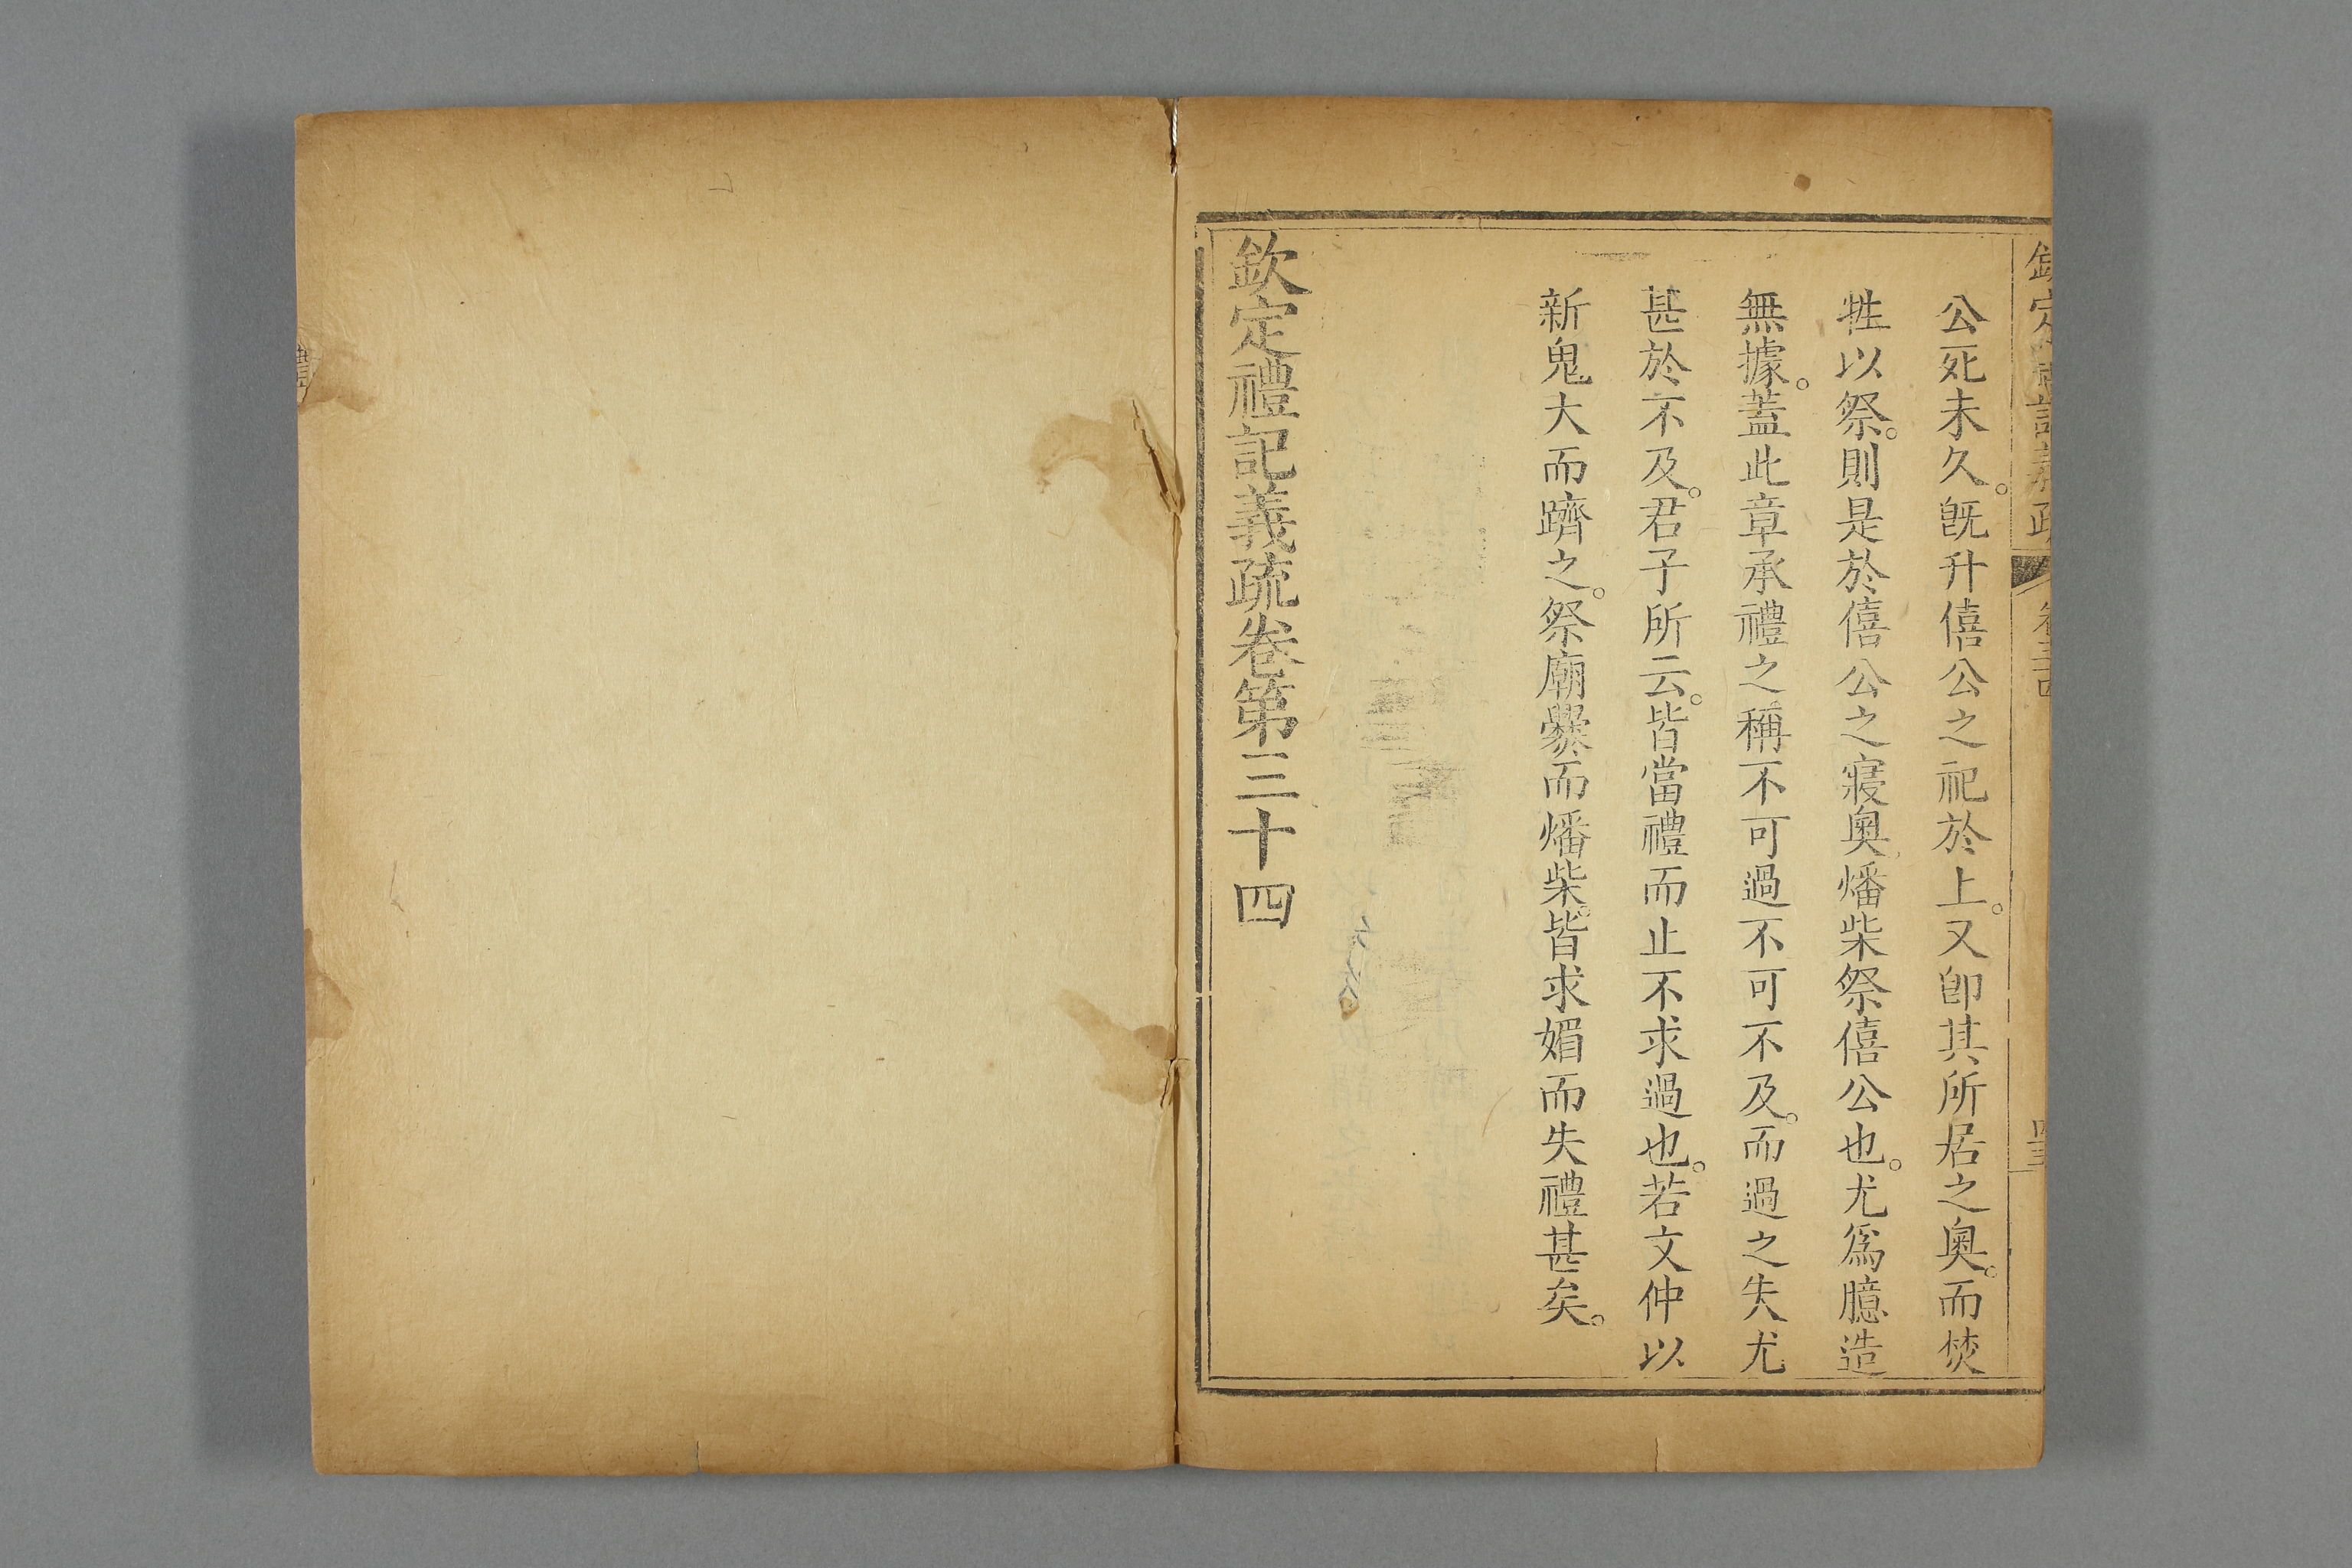 公死未久。旣升僖公之祀於上。又卽其所居之奧。而焚
牲以祭。則是於僖公之寢奧燔柴祭僖公也。尤爲臆造
無據。蓋此章承禮之稱不可過不可不及。而過之失尤
甚於不及。君子所云。皆當禮而止不求過也。若文仲以
新鬼大而躋之。祭廟爨而燔柴。皆求媚而失禮甚矣。
欽定禮記義疏卷第三十四